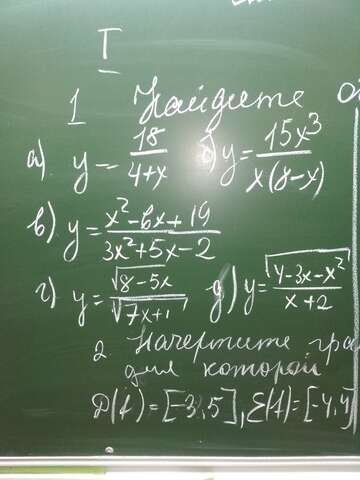 I
1 Найдите
а) y = 18/(4+x) б) y = 15x³/(x(8-x))
в) y = (x²-6x+19)/(3x²+5x-2)
г) y = √(8-5x)/√(7x+1) д) y = √(4-3x-x²)/(x+2)
2 Начертите гра
для которой
D(f)=[-3;5], E(f)=[-4,4]